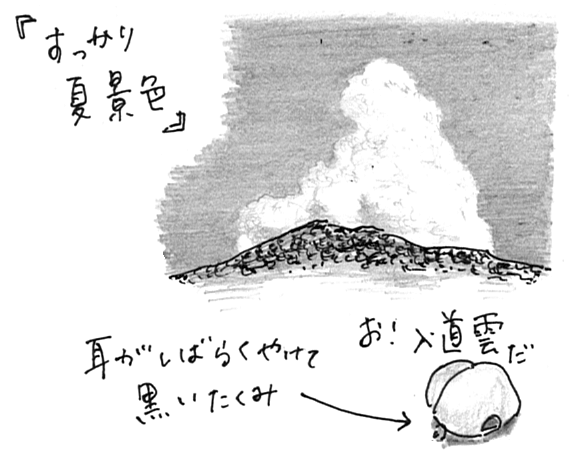 『すっかり
夏景色』
お！入道雲だ
耳がしばらくやけて
黒いたくみ